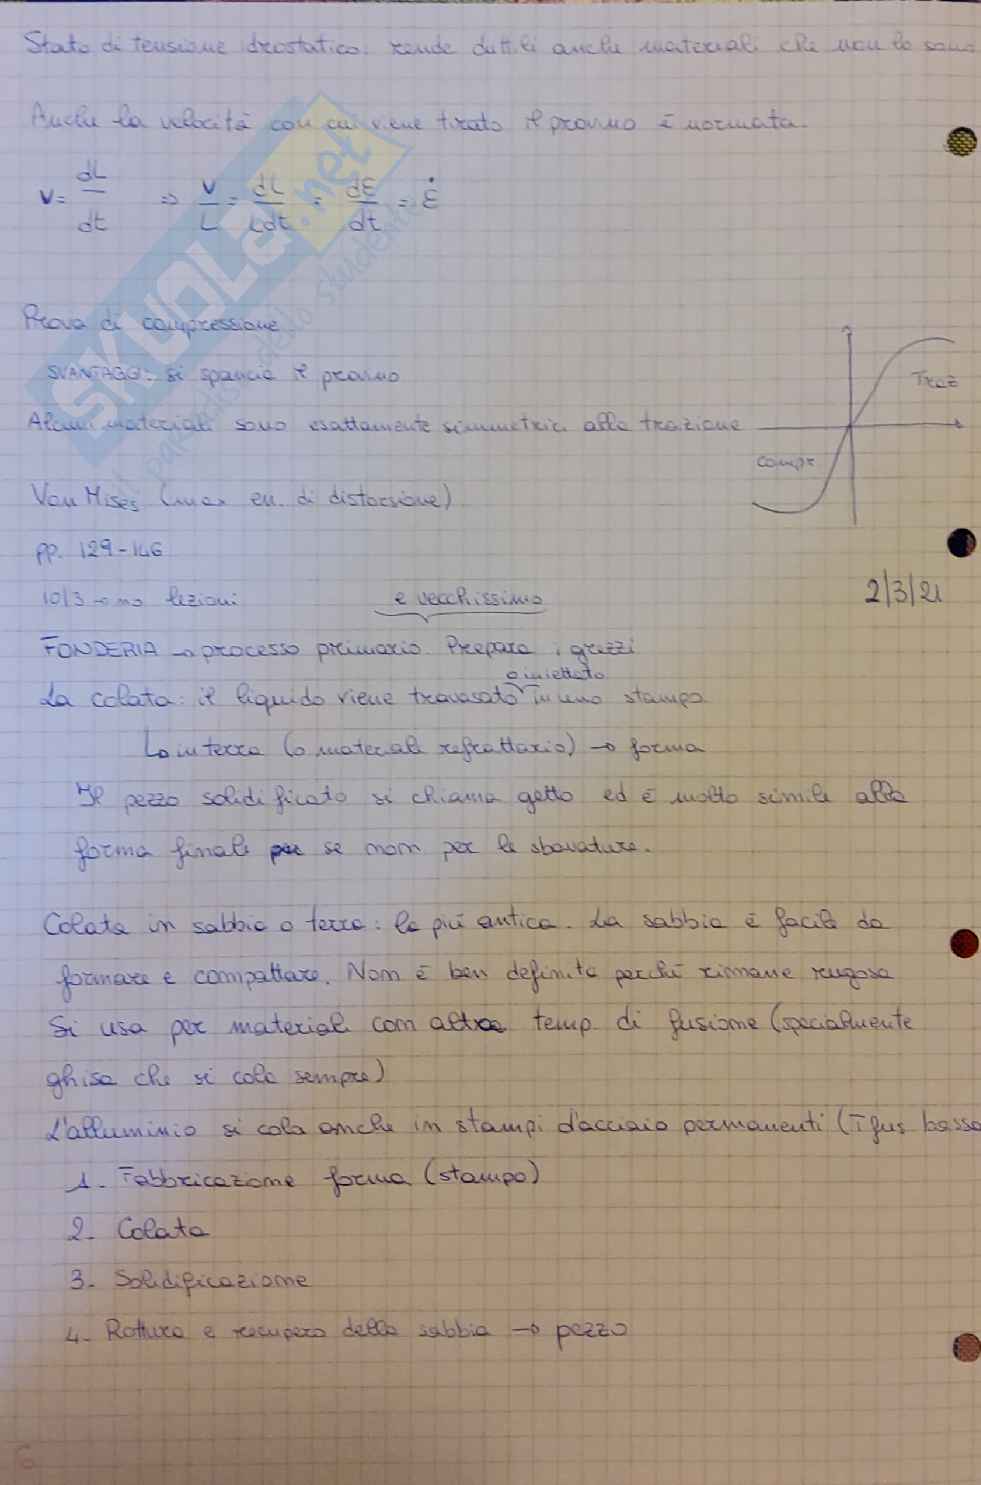 Stato di tensione idrostatico: rende duttili anche materiali che non lo sono
Anche la velocità con cui viene tirato il provino è normata.
v = dL/dt ⇒ v/L = dL/Ldt = dε/dt = ε̇
Prova di compressione
SVANTAGGI: si spancia il provino
Alcuni materiali sono esattamente simmetrici alla trazione
Traz
compr
Von Mises (max en. di distorsione)
pp. 129-146
10/3 → no lezioni
è vecchissimo
2/3/21
FONDERIA → processo primario. Prepara i grezzi
o iniettato
La colata: il liquido viene travasato in uno stampo
↳ in terra (o materiale refrattario) → forma
Il pezzo solidificato si chiama getto ed è molto simile alla
forma finale se non per le sbavature.
Colata in sabbia o terra: la più antica. La sabbia è facile da
formare e compattare. Non è ben definita perché rimane rugosa
Si usa per materiali con alta temp. di fusione (specialmente
ghisa che si cola sempre)
L'alluminio si cola anche in stampi d'acciaio permanenti (T fus bassa
1. Fabbricazione forma (stampo)
2. Colata
3. Solidificazione
4. Rottura e recupero della sabbia → pezzo
6
SKUOLA.net